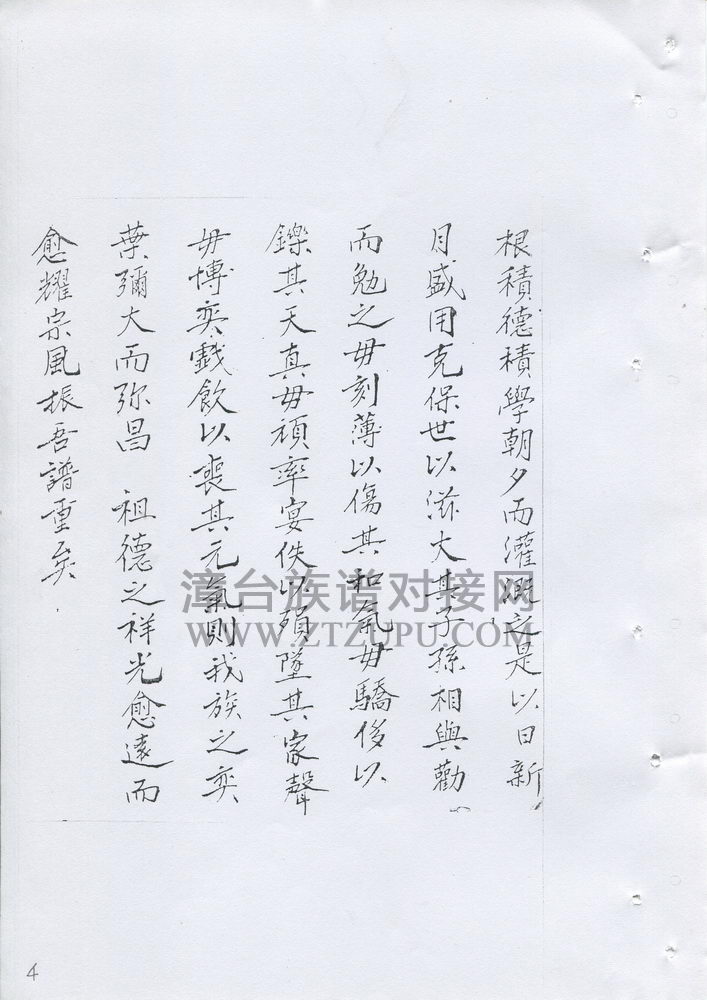 根積德積學朝夕而灌溉之是以日新
月盛用克保世以滋大其子孫相與勸
而勉之毋刻薄以傷其和氣毋驕侈以
鑠其天真毋頑率宴佚以殞墜其家聲
毋博奕戲飲以喪其元氣則我族之奕
葉彌大而弥昌 祖德之祥光愈遠而
愈耀宗風振吾譜重矣
漳台族谱对接网
WWW.ZTZUPU.COM
4